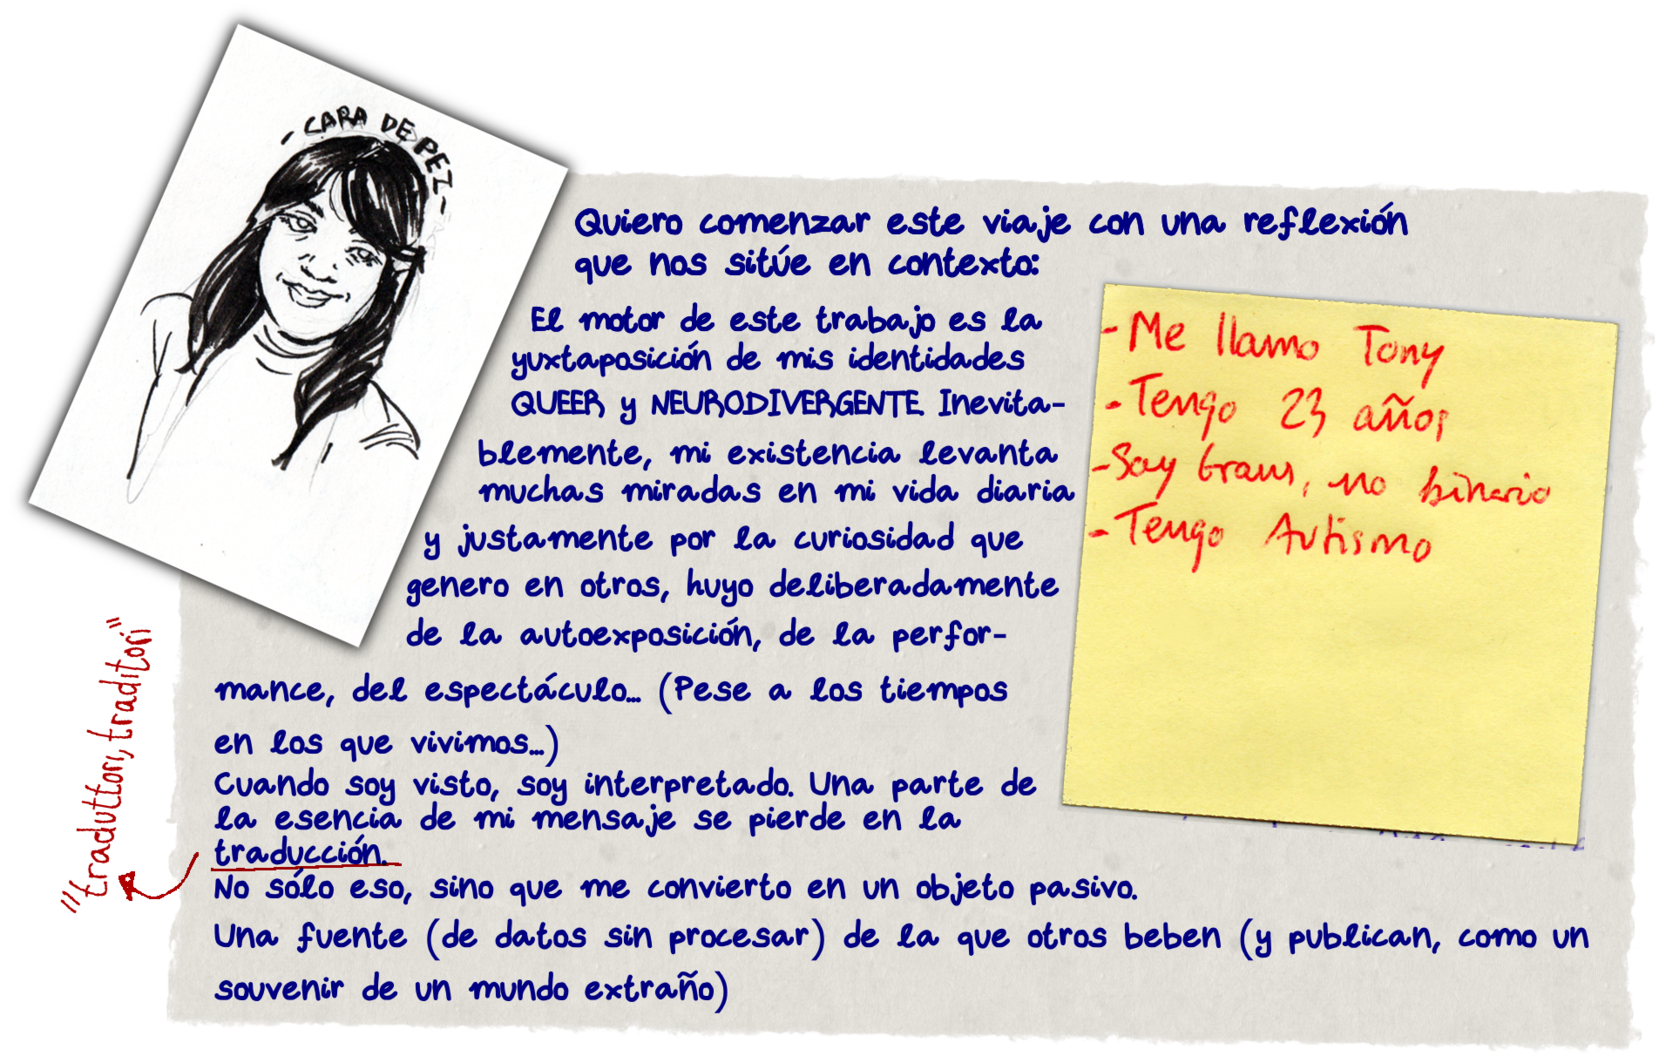 - CARA DE PEZ -
Quiero comenzar este viaje con una reflexión
que nos sitúe en contexto:
El motor de este trabajo es la
yuxtaposición de mis identidades
QUEER y NEURODIVERGENTE. Inevita-
blemente, mi existencia levanta
muchas miradas en mi vida diaria
y justamente por la curiosidad que
genero en otros, huyo deliberadamente
de la autoexposición, de la perfor-
mance, del espectáculo... (Pese a los tiempos
en los que vivimos...)
Cuando soy visto, soy interpretado. Una parte de
la esencia de mi mensaje se pierde en la
traducción.
No sólo eso, sino que me convierto en un objeto pasivo.
Una fuente (de datos sin procesar) de la que otros beben (y publican, como un
souvenir de un mundo extraño)
- Me llamo Tony
- Tengo 23 años
- Soy trans, no binario
- Tengo Autismo
"traduttori, traditori"